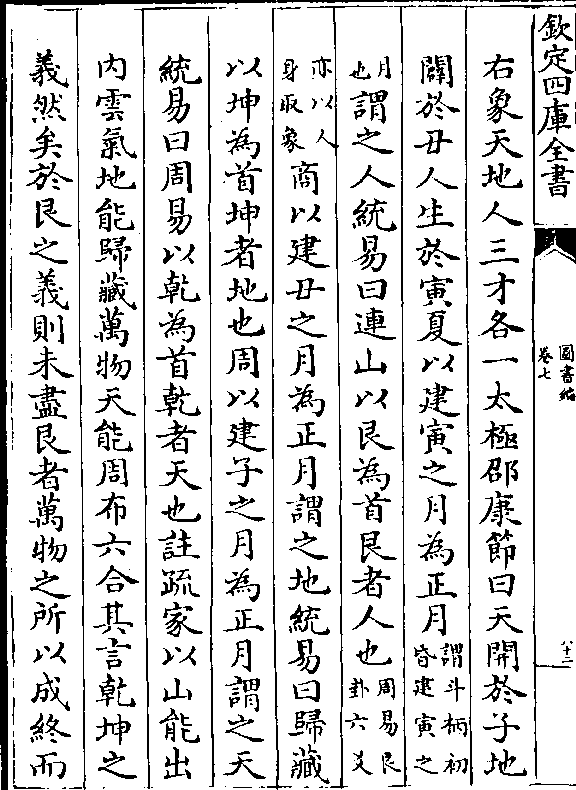 欽定四庫全書
圖書編
卷七
右象天地人三才各一太極邵康節曰天開於子地
闢於丑人生於寅夏以建寅之月為正月謂斗柄初昏建寅之
月也謂之人統易曰連山以艮為首艮者人也周易艮卦六爻
亦以人身取象商以建丑之月為正月謂之地統易曰歸藏
以坤為首坤者地也周以建子之月為正月謂之天
統易曰周易以乾為首乾者天也註疏家以山能出
內雲氣地能歸藏萬物天能周布六合其言乾坤之
義然矣於艮之義則未盡艮者萬物之所以成終而